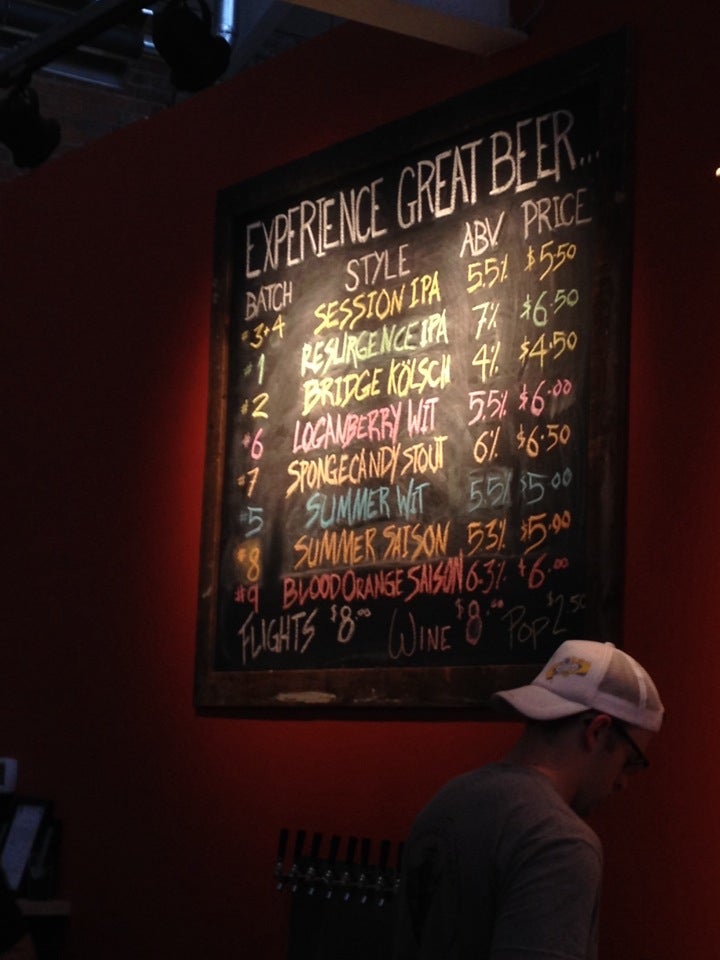 EXPERIENCE GREAT BEER...
BATCH STYLE ABV PRICE
#3+4 SESSION IPA 5.5% $5.50
#1 RESURGENCE IPA 7% $6.50
#2 BRIDGE KÖLSCH 4% $4.50
#6 LOGANBERRY WIT 5.5% $6.00
#7 SPONGECANDY STOUT 6% $6.50
#5 SUMMER WIT 5.5% $5.00
#8 SUMMER SAISON 5.3% $5.00
#9 BLOOD ORANGE SAISON 6.3% $6.00
FLIGHTS $8.00 WINE $8.00 POP $2.50